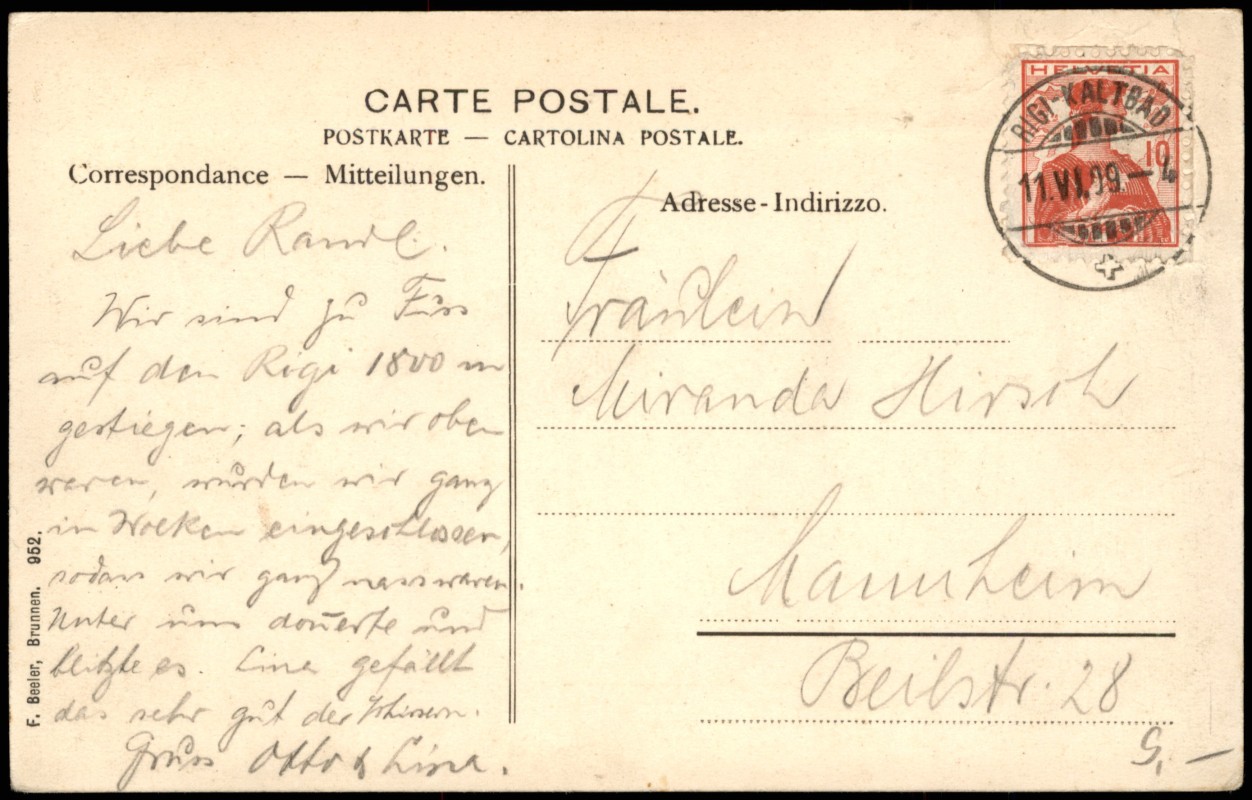 CARTE POSTALE.
POSTKARTE — CARTOLINA POSTALE.
Correspondance — Mitteilungen.
Adresse-Indirizzo.
HELVETIA
10
RIGI-KALTBAD
11.VI.09.—4
Liebe Randl.
Wir sind zu Fuss
auf den Rigi 1800 m
gestiegen; als wir oben
waren, wurden wir ganz
in Wolken eingeschlossen,
sodass wir ganz nass waren.
Unter uns donnerte und
blitzte es. Lina gefällt
das sehr gut
Gruss Otto & Lina.
Fräulein
Miranda Hirsch
Mannheim
Beilstr. 28
F. Beeler, Brunnen. 952.